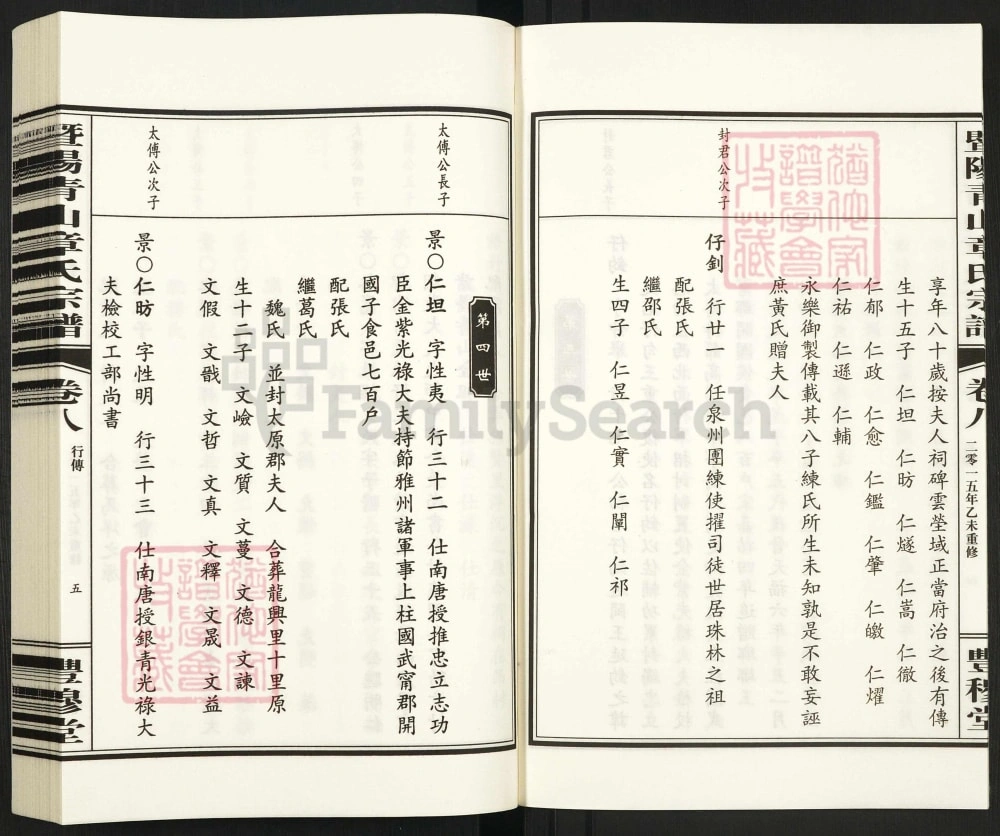 暨陽青山章氏宗譜
卷八
二零一五年乙未重修
豐穆堂
享年八十歲按夫人祠碑雲瑩域正當府治之後有傳
生十五子 仁坦 仁昉 仁燧 仁嵩 仁徹
仁郁 仁政 仁愈 仁鑑 仁肇 仁皦 仁燿
仁祐 仁遜 仁輔
永樂御製傳載其八子練氏所生未知孰是不敢妄誣
庶黃氏贈夫人
封君公次子
仔釗 行廿一 任泉州團練使擢司徒世居珠林之祖
配張氏
繼邵氏
生四子 仁昱 仁實 仁闈 仁祁
第四世
太傅公長子
景〇仁坦 字性夷 行三十二 仕南唐授推忠立志功
臣金紫光祿大夫持節雅州諸軍事上柱國武甯郡開
國子食邑七百户
配張氏
繼葛氏
魏氏 並封太原郡夫人 合葬龍興里十里原
生十二子 文嶮 文質 文蔓 文德 文諫
文假 文戩 文哲 文真 文釋 文晟 文益
太傅公次子
景〇仁昉 字性明 行三十三 仕南唐授銀青光祿大
夫檢校工部尚書
暨陽青山章氏宗譜
卷八
行傳
五
豐穆堂
FamilySearch